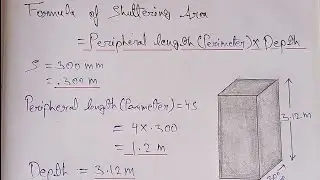 Formula of Shuttering Area
= Peripheral length (Perimeter) x Depth
S = 300 mm
= .300 m
Peripheral length (Perimeter) = 4S
= 4 x .300
= 1.2 m
Depth = 3.12 m
3.12 m